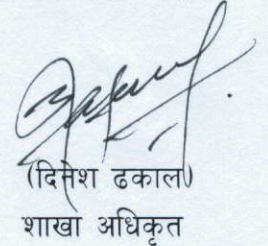 (दिनेश ढकाल)
शाखा अधिकृत